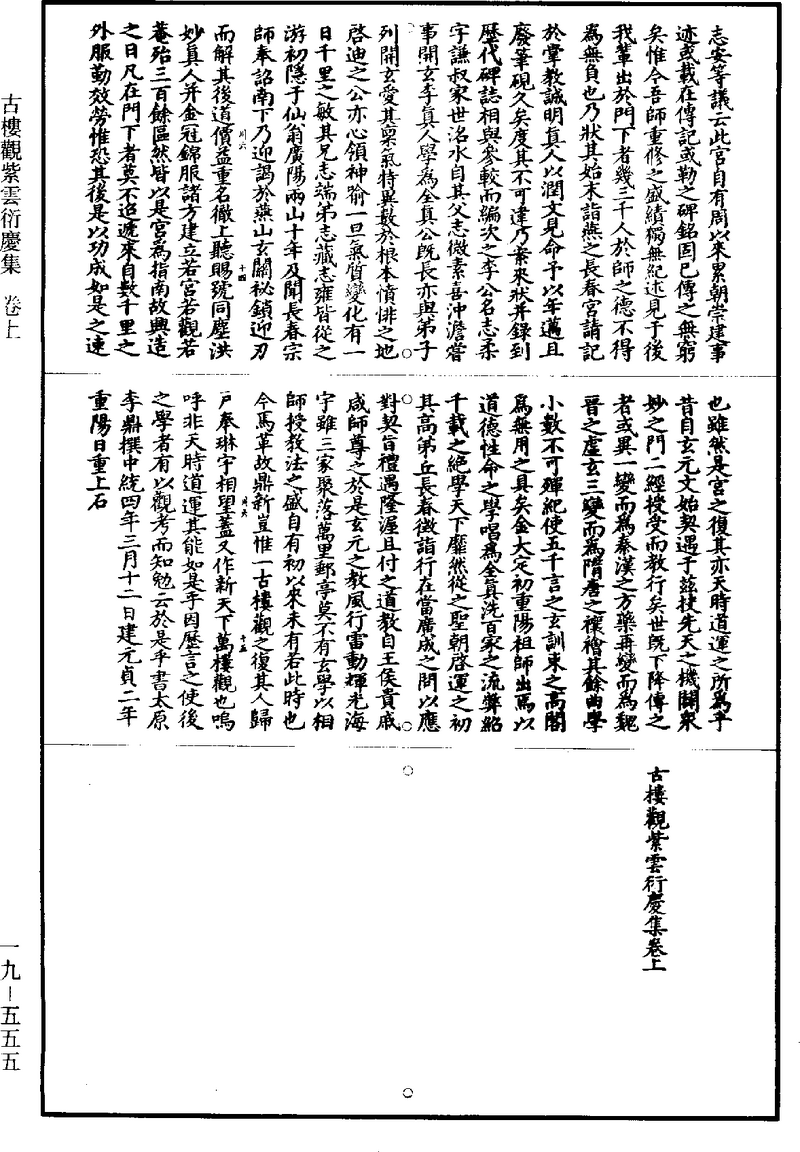 志安等議云此宮自有周以來累朝崇建事
迹或載在傳記或勒之碑銘固已傳之無窮
矣惟今吾師重修之盛績獨無紀述見于後
我輩出於門下者幾三千人於師之德不得
為無負也乃狀其始末詣燕之長春宮請記
於掌教誠明真人以潤文見命予以年邁且
廢筆硯久矣度其不可違乃案來狀并錄到
歷代碑誌相與參較而編次之李公名志柔
字謙叔家世洺水自其父志微素喜沖澹嘗
事開玄李真人學為全真公既長亦與弟子
列開玄愛其稟氣特異數於根本憤悱之地
啓迪之公亦心領神喻一旦氣質變化有一
日千里之敏其兄志端弟志藏志雍皆從之
游初隱于仙翁廣陽兩山十年及聞長春宗
師奉詔南下乃迎謁於燕山玄關祕鎖迎刃
而解其後道價益重名徹上聽賜號同塵洪
妙真人并金冠錦服諸方建立若宮若觀若
菴殆三百餘區然皆以是宮為指南故興造
之日凡在門下者莫不迢遞來自數千里之
外服勤效勞惟恐其後是以功成如是之速
也雖然是宮之復其亦天時道運之所為乎
昔自玄元文始契遇于茲抉先天之機闢眾
妙之門二經授受而教行矣世既下降傳之
者或異一變而為秦漢之方藥再變而為魏
晉之虛玄三變而為隋唐之禳禬其餘曲學
小數不可殫紀使五千言之玄訓束之高閣
為無用之具矣金大定初重陽祖師出焉以
道德性命之學唱為全真洗百家之流弊紹
千載之絕學天下靡然從之聖朝啓運之初
其高弟丘長春徵詣行在當廣成之問以應
對契旨禮遇隆渥且付之道教自王侯貴戚
咸師尊之於是玄元之教風行雷動輝光海
宇雖三家聚落萬里郵亭莫不有玄學以相
師授教法之盛自有初以來未有若此時也
今馬革故鼎新豈惟一古樓觀之復其人歸
戶奉琳宇相望蓋又作新天下萬樓觀也嗚
呼非天時道運其能如是乎因歷言之使後
之學者有以觀考而知勉云於是乎書太原
李鼎撰中統四年三月十二日建元貞二年
重陽日重上石
古樓觀紫雲衍慶集卷上
古樓觀紫雲衍慶集 卷上
一九－五五五